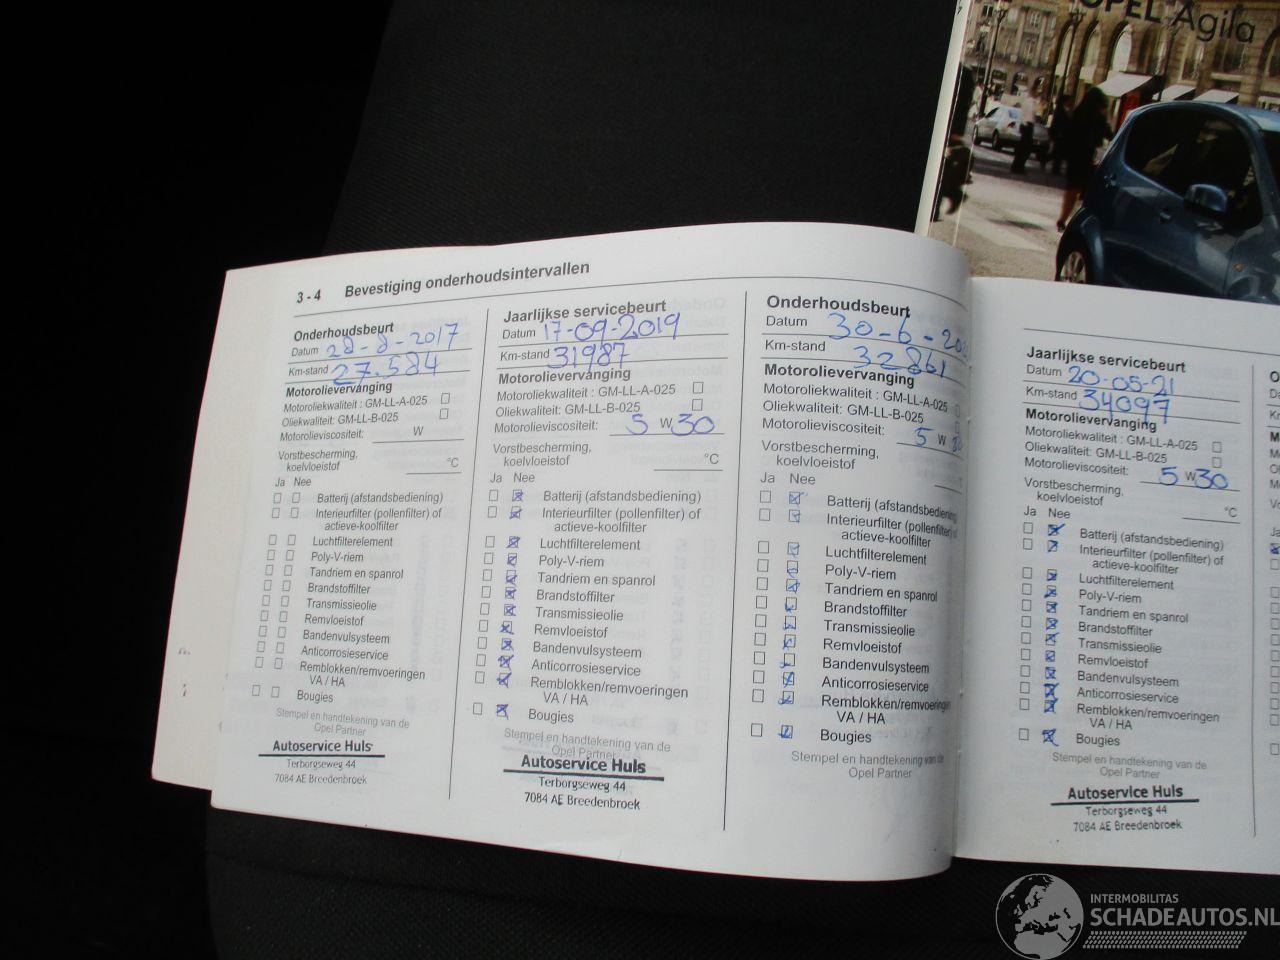 OPEL Agila
3 - 4 Bevestiging onderhoudsintervallen
Onderhoudsbeurt
Datum 28-8-2017
Km-stand 27.584
Motorolievervanging
Motoroliekwaliteit : GM-LL-A-025
Oliekwaliteit: GM-LL-B-025
Motorolieviscositeit: W
Vorstbescherming,
koelvloeistof °C
Ja Nee
Batterij (afstandsbediening)
Interieurfilter (pollenfilter) of
actieve-koolfilter
Luchtfilterelement
Poly-V-riem
Tandriem en spanrol
Brandstoffilter
Transmissieolie
Remvloeistof
Bandenvulsysteem
Anticorrosieservice
Remblokken/remvoeringen
VA / HA
Bougies
Stempel en handtekening van de
Opel Partner
Autoservice Huls
Terborgseweg 44
7084 AE Breedenbroek
Jaarlijkse servicebeurt
Datum 17-09-2019
Km-stand 31987
Motorolievervanging
Motoroliekwaliteit : GM-LL-A-025
Oliekwaliteit: GM-LL-B-025
Motorolieviscositeit: 5 W 30
Vorstbescherming,
koelvloeistof °C
Ja Nee
Batterij (afstandsbediening)
Interieurfilter (pollenfilter) of
actieve-koolfilter
Luchtfilterelement
Poly-V-riem
Tandriem en spanrol
Brandstoffilter
Transmissieolie
Remvloeistof
Bandenvulsysteem
Anticorrosieservice
Remblokken/remvoeringen
VA / HA
Bougies
Stempel en handtekening van de
Opel Partner
Autoservice Huls
Terborgseweg 44
7084 AE Breedenbroek
Onderhoudsbeurt
Datum 30-6-20
Km-stand 32861
Motorolievervanging
Motoroliekwaliteit : GM-LL-A-025
Oliekwaliteit: GM-LL-B-025
Motorolieviscositeit: 5 W 30
Vorstbescherming,
koelvloeistof
Ja Nee
Batterij (afstandsbediening)
Interieurfilter (pollenfilter) of
actieve-koolfilter
Luchtfilterelement
Poly-V-riem
Tandriem en spanrol
Brandstoffilter
Transmissieolie
Remvloeistof
Bandenvulsysteem
Anticorrosieservice
Remblokken/remvoeringen
VA / HA
Bougies
Stempel en handtekening van de
Opel Partner
Jaarlijkse servicebeurt
Datum 20-05-21
Km-stand 34097
Motorolievervanging
Motoroliekwaliteit : GM-LL-A-025
Oliekwaliteit: GM-LL-B-025
Motorolieviscositeit: 5 W 30
Vorstbescherming,
koelvloeistof °C
Ja Nee
Batterij (afstandsbediening)
Interieurfilter (pollenfilter) of
actieve-koolfilter
Luchtfilterelement
Poly-V-riem
Tandriem en spanrol
Brandstoffilter
Transmissieolie
Remvloeistof
Bandenvulsysteem
Anticorrosieservice
Remblokken/remvoeringen
VA / HA
Bougies
Stempel en handtekening van de
Opel Partner
Autoservice Huls
Terborgseweg 44
7084 AE Breedenbroek
INTERMOBILITAS
SCHADEAUTOS.NL